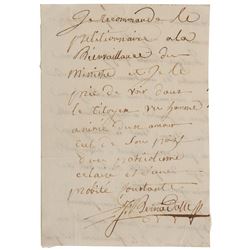 Je recommande le
petitionnaire a la
Bienveillance du
Ministre et je le
prie de voir dans
le Citoyen un homme
animé d'un amour
de son païs
d'un patriotisme
eclairé et d'une
probité constante